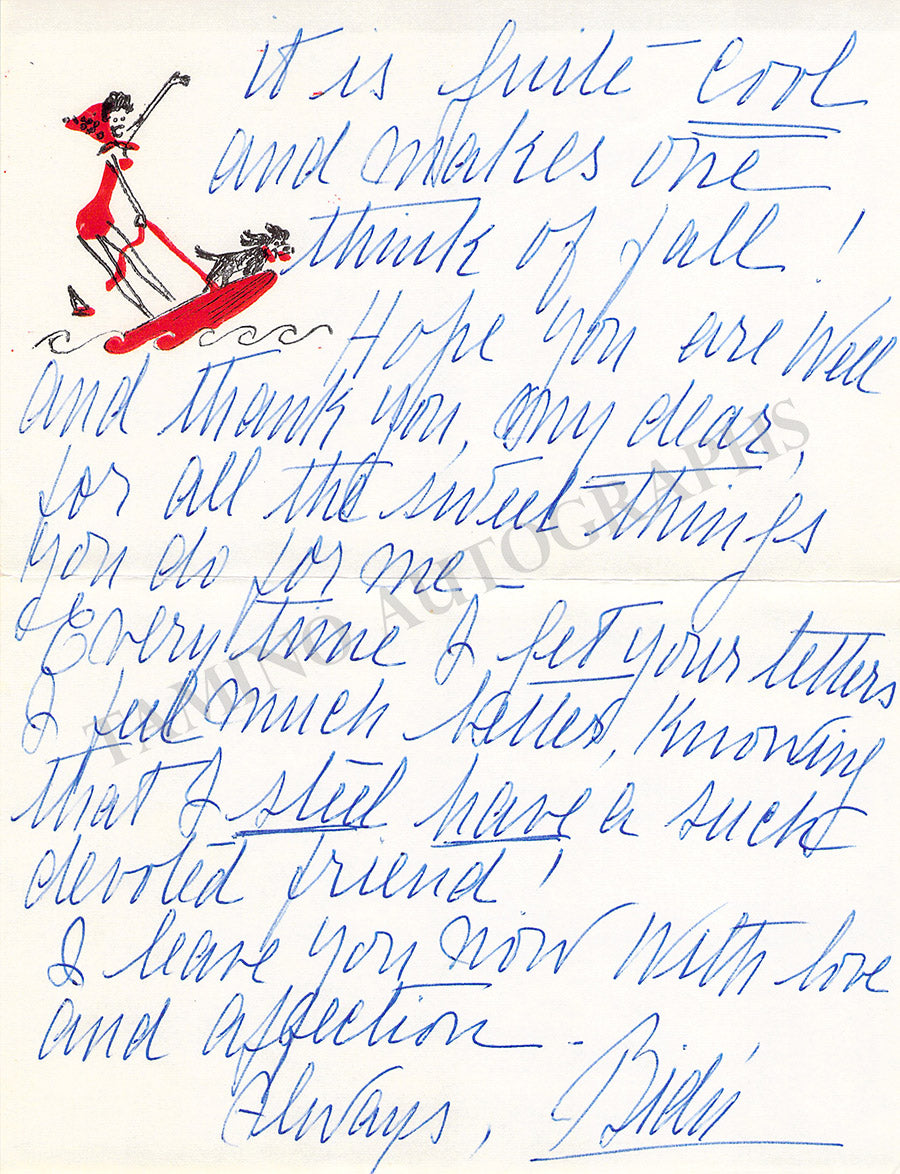 It is quite cool
and makes one
think of fall!
Hope you are well
and thank you, my dear,
for all the sweet things
you do for me -
Everytime I get your letters
I feel much better, knowing
that I still have a such
devoted friend!
I leave you now with love
and affection -
Always, Bidú
TAMINO AUTOGRAPHS